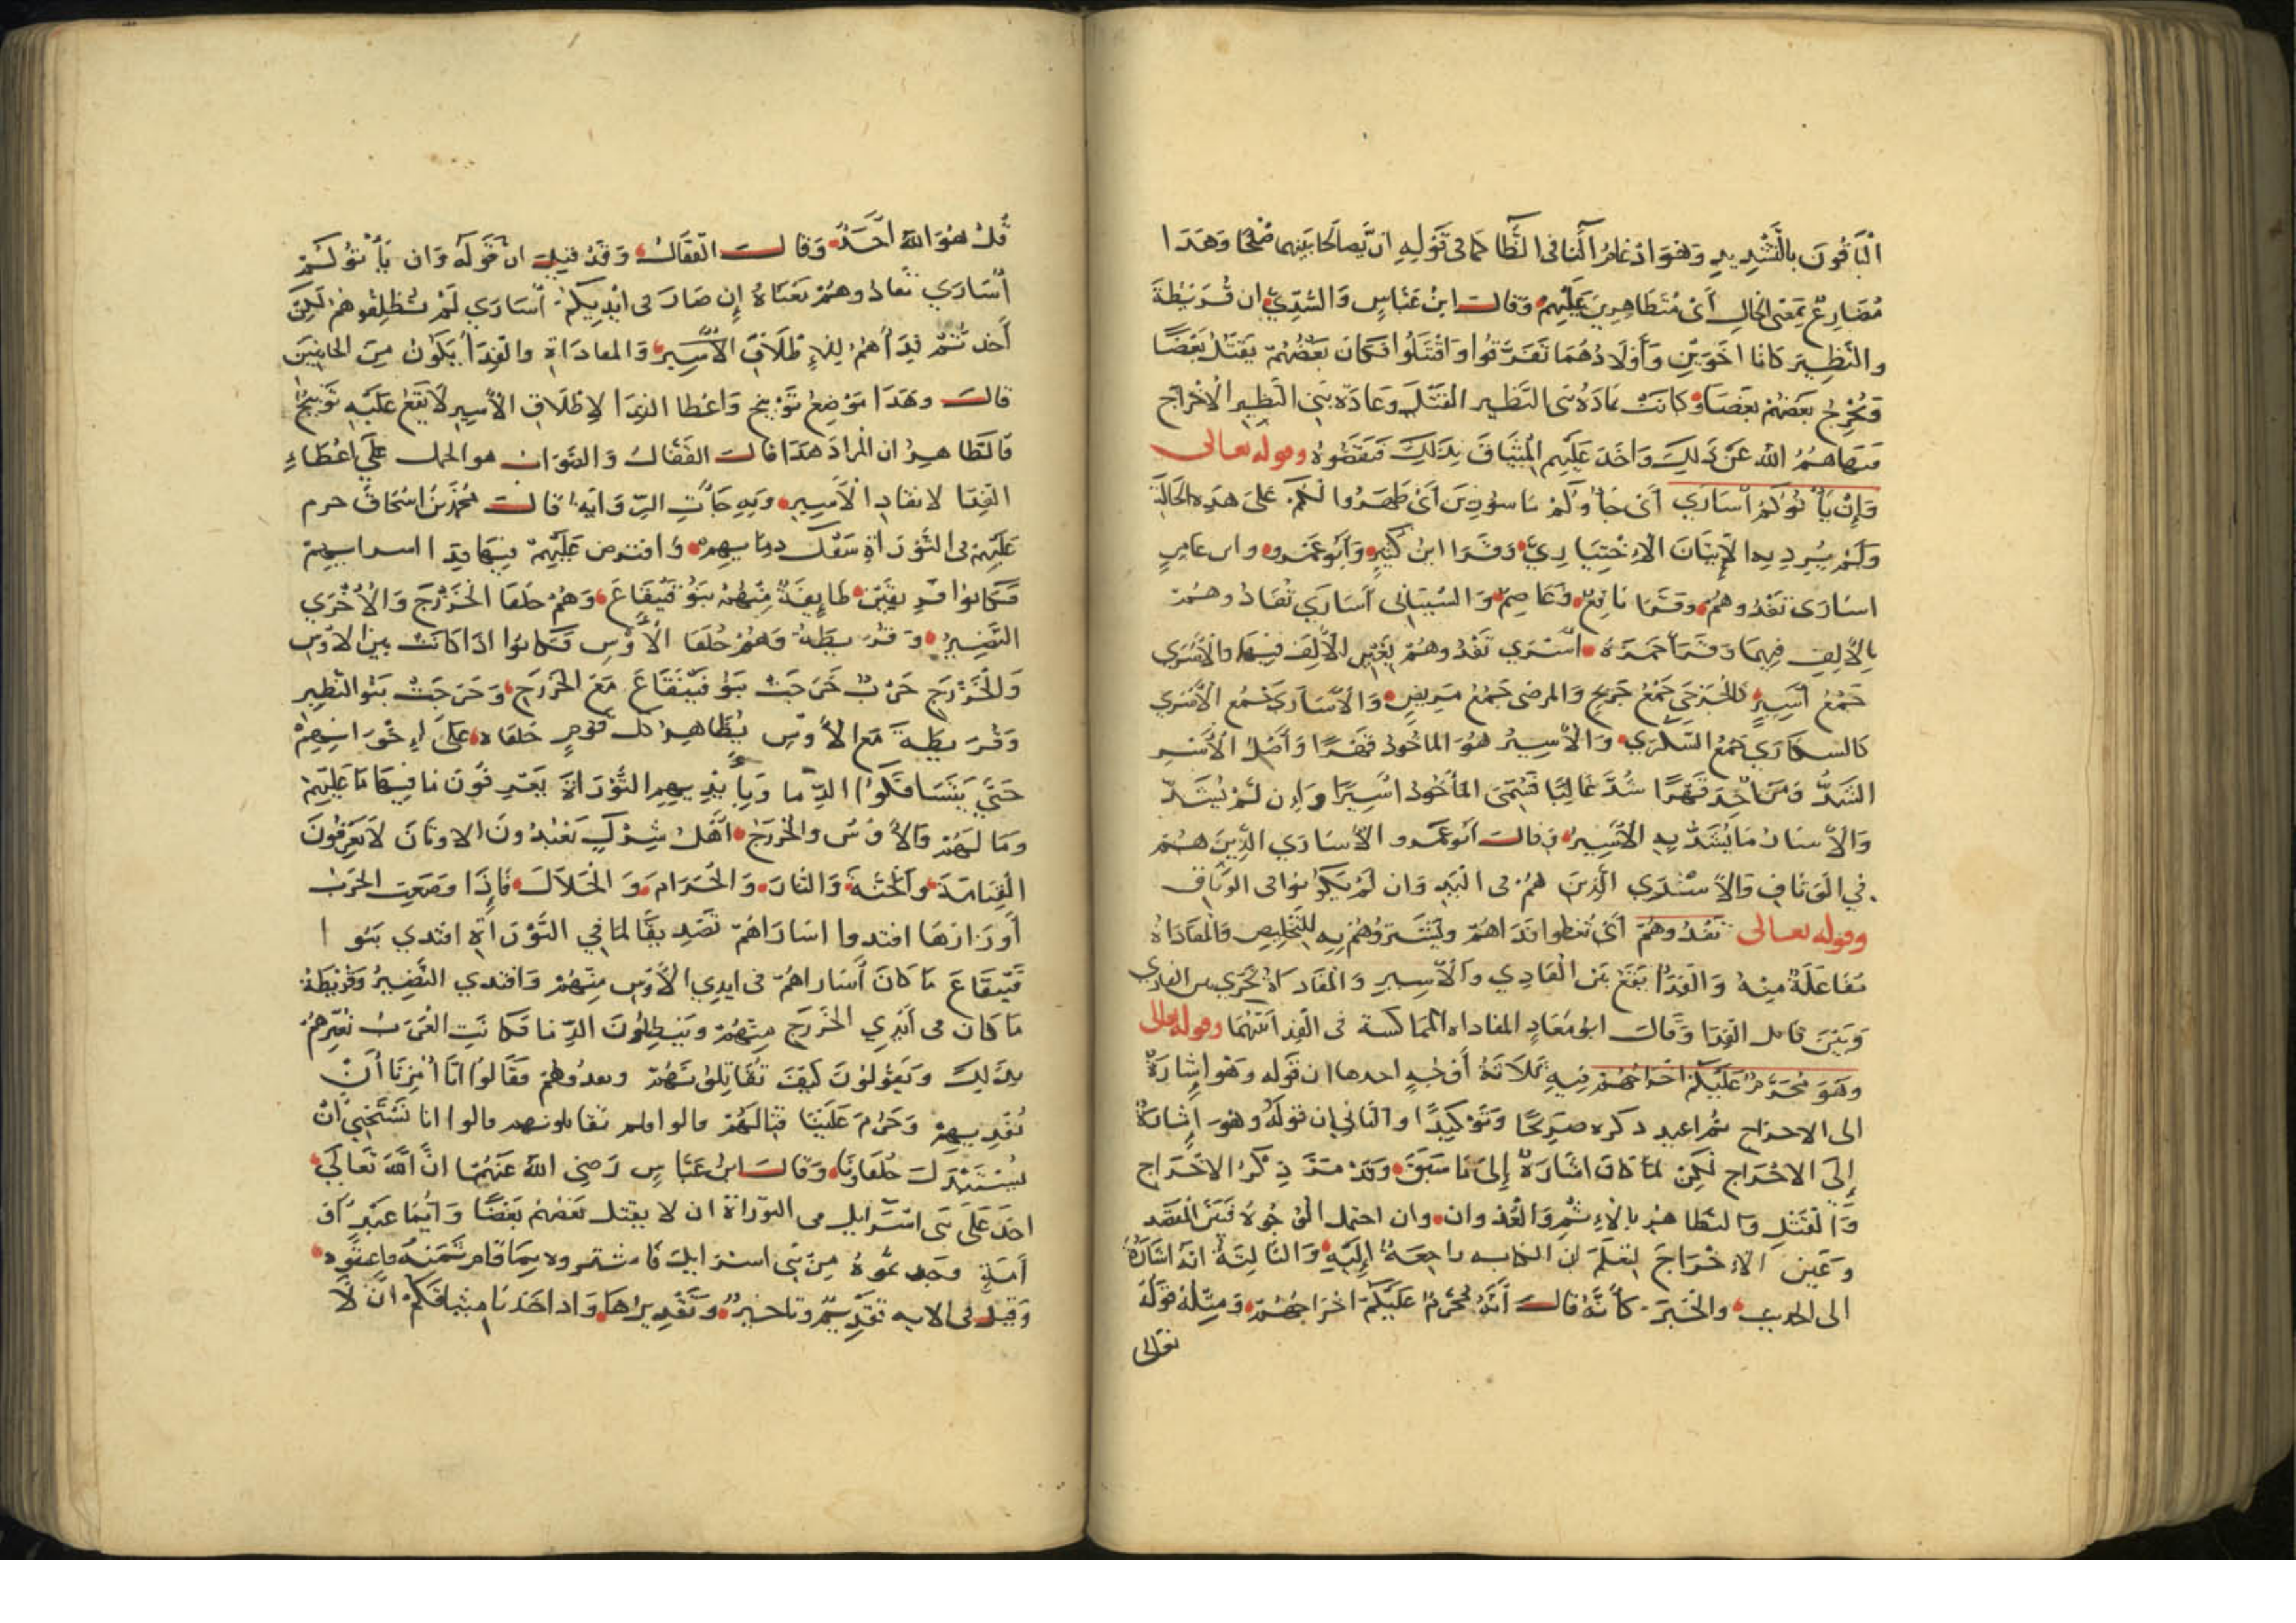 الْبَاقُونَ بِالتَّشْدِيدِ وَهُوَ ادْغَامُ التَّا فى الظَّا كما فى قَوْلِهِ ان يَّصالحا بَينهما صُلْحًا وَهَذَا
مُضَارِعٌ بمَعْنى الحَالِ أَىْ مُتَظَاهِرِينَ عَلَيْهِمْ وَقالَ ابنُ عَبَّاسٍ وَالسُّدِّيُّ ان قُرَيْظَةَ
والنَّضِيرَ كَانَا اخَوَيْنِ وَأَوْلَادُهُمَا تَفَرَّقُوا وَاقْتَتَلُوا فكانَ بَعْضُهُمْ يَقْتُلُ بَعْضًا
وَيُخْرِجُ بَعْضُهُمْ بَعْضًا وَكانَتْ عَادَةُ بَنى النَّظِير القَتْلَ وَعَادَةُ بَنِى النَّظِيرِ الْاخْرَاج
فنهاهُمُ اللهُ عَنْ ذَلِكَ وَاخَذَ عَلَيْهِم الْمِيثَاقَ بِذَلِكَ فَنَقَضُوهُ وقوله تعالى
وَإِنْ يَأْتُوكُمْ اُسَارَي أَىْ جَاؤُكُمْ مَاسُورِينَ أَىْ ظَهَرُوا لَكُمْ عَلَى هَذِهِ الحَالَةِ
وَلَمْ يُرِدْ بِهِ الْإِتْيَانَ الاخْتِيَارِيَّ وَقَرَا ابنُ كَثِيرٍ وَأَبُو عَمْرو وابن عَامِرٍ
اسَارَى تَفْدُوهُمْ وقَرَا نَافِعٌ وَعَاصِمٌ وَالسِّيبَانى اُسَارَي تُفَادُوهُمْ
بِالْأَلِفِ فِيهِمَا وَقَرَأَ حَمْزَةُ أَسْرَي تَفْدُوهُمْ بِغَيْرِ الْأَلِفِ فِيهَا وَالْأَسْرَى
جَمْعُ أَسِيرٍ كَالجَرْحَي جَمْعُ جَرِيحٍ وَالمرضى جَمْعُ مَرِيضٍ وَالْأُسَارَى جَمْعُ الْأَسْرَي
كَالسكَارَي جَمْعُ السَّكْرَي وَالْأَسِيرُ هُوَ المَاخُوذُ قَهْرًا وَأَصْلُ الْأَسْرِ
الشَّدُّ وَمَنْ اُخِذَ قَهْرًا شُدَّ غَالِبًا فَسُمِّىَ المَأخُوذُ اَسِيرًا وَإِن لَمْ يُشَدَّ
وَالْأَسَارُ مَا يُشَدُّ بِهِ الْأَسِيرُ وَقالَ اَبُو عَمْرو الْأُسَارَي الَّذِينَ هُمْ
فِي الْوَثَاقِ وَالْأَسْرَي الَّذِينَ هُمْ فى الْيَدِ وَان لَمْ يَكُونُوا فى الْوَثَاقِ
وقوله تعالى تَفْدُوهُمْ أَيْ تُعْطُوا فِدَاهُمْ وَتَشْتَرُوهُمْ بِهِ لِلتَّخْلِيصِ وَالْمُفَادَاةُ
مُفَاعَلَةٌ مِنْهُ وَالْفِدَا يَقَعُ بَيْنَ الْفَادِي وَالْأَسِيرِ وَالْمُفَادَاةُ تَجْرَي بين الفادى
وَبَيْنَ قابل الفِدَا وَقَالَ ابُو مُعَاذٍ المفاداه المماكسة فى الْفِدا بَيْنَهُمَا وقوله تعالى
وَهُوَ مُحَرَّمٌ عَلَيْكُمْ اخْرَاجُهُمْ فِيهِ ثَلَاثَةُ أَوْجُهٍ احدها ان قَوْله وَهُوَ اِشَارَةٌ
الى الاخراج ثم اعيد ذكره صَرِيحًا وَتَوْكِيدًا والثانى ان قَوْلَهُ وهُوَ اِشَارَةٌ
إِلَى الاخْرَاج لَكِنْ لمَّا كَانَ اشَارَةً إِلَى مَا سَبَقَ وَقَدْ مَرَّ ذِكْرُ الاخْرَاج
وَالْقَتْلِ وَالتظَاهُرِ بِالْإِثْمِ وَالْعُدْوان وان احتمل الْوُجُوهُ فَبَيَّنَ المَقْصد
وَعَيَّنَ الْإِخْرَاجَ لِتَعْلَمَ ان الكناية راجِعَةٌ إِلَيْهِ وَالثَّالِثَةُ انَّهُ اشَارَةٌ
الى الحديث والْخَبَرَ كأَنَّهُ قالَ أَنَّهُ مُحَرَّمٌ عَلَيْكُمْ اخْرَاجُهُمْ وَمِثْلُهُ قَوْلُهُ
تعالى
قُلْ هُوَ اللهُ اَحَدٌ وَقالَ القَفَّالُ وَقَدْ قِيلَ ان قَوْلَهُ وَان يَأْتُوكُمْ
اُسَارَي تُفادُوهُمْ مَعْنَاهُ إِن صَارَ فى أَيْدِيكُمْ اُسَارَي لَمْ تُطْلِقُوهُمْ لَكِنْ
أَخَذْتُمْ فِدَأَهُمْ لِلْإِطْلَاقِ الْأَسِيرِ وَالمفادَاة والفِدَأُ يَكُونُ مِنَ الجَانِبَيْنِ
قالَ وهَذَا مَوْضِعُ تَوْبِيخٍ وَاعْطَا الفِدَا لِإِطْلَاقِ الْأَسِيرِ لَا يَقَعُ عَلَيْهِ تَوْبِيخٌ
فَالظَاهِرُ ان المُرَادَ هَذَا قالَ القَفَّالُ وَالصَّوَابُ هو الحمل عَلَي اعْطَاءِ
الفِدَا لانقَاذِ الْأَسِيرِ وَبِهِ جَأَتِ الرِّوَايَةُ قالَ مُحَمَّدُ بْنُ اسْحَاقَ حرم
عَلَيْهِمْ فى التَّوْرَاةِ سَفْكَ دمَايِهِمْ وَافترض عَلَيْهِمْ فِيهَا فِدَا اسرايِهِمْ
فَكانُوا فَرِيقَيْنِ طَايِفَةٌ مِنْهُمْ بَنُو قَيْقَاعَ وَهُمْ حُلَفَا الْخَزْرَجِ وَالْأُخْرَي
النَّضِيرُ وَقُرَيظَةُ وَهُمْ حُلَفَا الْأَوْسِ فَكانُوا اذَا كَانَتْ بين الاَوْسِ
وَالْخَزْرَجِ حَرْبٌ خَرَجَتْ بَنُو قَيْنُقَاعَ مَعَ الخَزْرَجِ وَخَرَجَتْ بَنُو النَّظِيرِ
وَقُرَيظَةَ مَعَ الْأَوْسِ يُظَاهِرُ كل قَوْمٍ حُلَفَاهُ عَلَى إِخْوَانِهِمْ
حَتَّي يَتَسَافَكُوا الدِّمَا وَبِأَيْدِيهِمِ التَّوْرَاةَ يَعْرِفُونَ مَا فِيهَا مَا عَلَيْهِمْ
وَمَا لَهُمْ وَالْأَوْسُ وَالخَزْرَجُ اَهْلُ شِرْكٍ يَعْبُدُونَ الاوثَانَ لَا يَعْرِفُونَ
الْقِيَامَةَ وَالْجَنَّةَ وَالنَّارَ وَالْحَرَامَ وَالْحَلَالَ فَإِذَا وَضَعَتِ الحَرْبُ
أَوْزَارَهَا افتدوا اسَارَاهُمْ تَصْدِيقًا لِمَا فِي التَّوْرَاةِ افتدي بَنُو
قَيْقَاعَ مَا كَانَ أُسَاراهُمْ فى ايدي الْأَوْسِ مِنْهُمْ وَافتدي النَّضِيرُ وَقُرَيْظَةُ
مَا كَانَ فى أَيْدِي الخَزْرَجِ مِنْهُمْ وَيُبْطِلُونَ الدِّمَا فَكَانَتِ الْعَرَبُ تُعَيِّرُهُمْ
بِذَلِكَ وَيَقُولُونَ كَيْفَ تُقَاتِلُونَهُمْ وَتفدُوهُمْ فَقَالُوا انَّا اُمِرْنَا أَنْ
نُفْدِيهِمْ وَحَرُمَ عَلَيْنَا قِتَالَهُمْ قالوا فلم تقاتلونهم قالوا انا نَسْتَحْيِىُ انْ
يُسْتَذَلَّ حُلَفَاونَا وَقالَ ابنُ عَبَّاسٍ رَضِىَ اللهُ عَنْهُمَا انَّ اللهَ تَعَالَي
اخَذَ عَلَى بَنى اسْرَايل فى التوراة ان لا يقتل بَعْضُهُمْ بَعْضًا وَأَيُّمَا عَبْدٍ أَوْ
أَمَةٍ وَجَدتمُوهُ مِنْ بَنِى اسرَايلَ فَاشتروه بِمَا قامَ ثَمَنُهُ فاعتقوه
وَقِيلَ فى الايه تَقْدِيمٌ وتاخيرٌ وتَقْدِيرُهَا وَاذ اخَذْنَا مِيثَاقَكُمْ انْ لَا